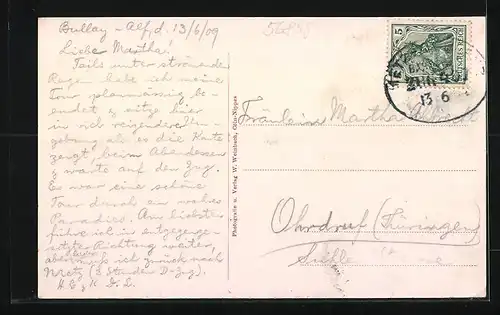 Bullay-Alf, d. 13/6/09
Liebe Martha!
Teils unter strömendem
Regen habe ich meine
Tour planmässig be-
endet & sitze hier
in noch reizenderer Um-
gebung als es die Karte
zeigt, beim Abendessen
& warte auf den Zug.
Es war eine schöne
Tour durch ein wahres
Paradies. Am liebsten
führe ich in entgegenge-
setzter Richtung weiter,
aber muß ich zurück nach
Metz (2 Stunden D-Zug).
Photographie u. Verlag W. Weinbach, Cöln-Nippes
5
DEUTSCHES REICH
13 6
Fräulein Martha
Ohrdruf (Thüringen)